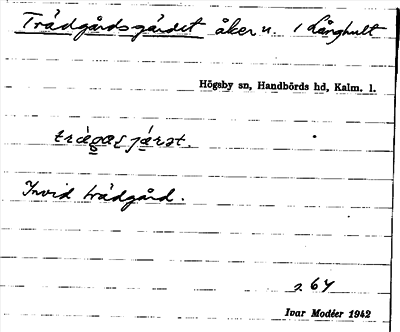 Trädgårdsgärdet åker u. / Långhult
Högsby sn, Handbörds hd, Kalm. l.
Invid trädgård.
s. 64
Ivar Modéer 1942